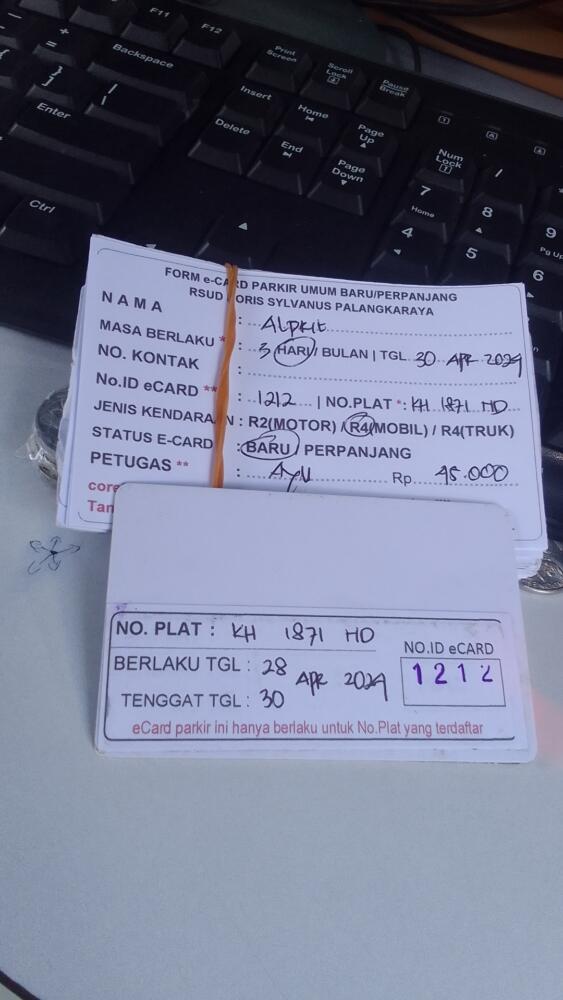 F11 F12
Print Screen
Scroll Lock
Pause Break
Backspace
Insert
Home
Page Up
Num Lock
Enter
Delete
End
Page Down
7 Home
8
9 Pg Up
4
5
6
Ctrl
FORM e-CARD PARKIR UMUM BARU/PERPANJANG
RSUD ORIS SYLVANUS PALANGKARAYA
NAMA : ALPKIE
MASA BERLAKU * : 3 HARI / BULAN | TGL 30 APR 2024
NO. KONTAK :
No.ID eCARD ** : 1212 | NO.PLAT * : KH 1871 HD
JENIS KENDARA N : R2(MOTOR) / R4(MOBIL) / R4(TRUK)
STATUS E-CARD : BARU / PERPANJANG
PETUGAS ** : AYU Rp 45.000
core
Tan
NO. PLAT : KH 1871 HD
BERLAKU TGL : 28 APR 2024
TENGGAT TGL : 30
NO.ID eCARD
1212
eCard parkir ini hanya berlaku untuk No.Plat yang terdaftar